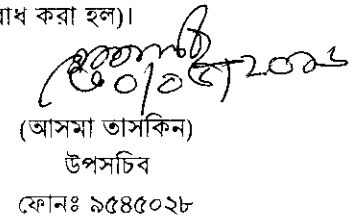 রোধ করা হল)।
(আসমা তাসকিন)
উপসচিব
ফোনঃ ৯৫৪৫০২৮